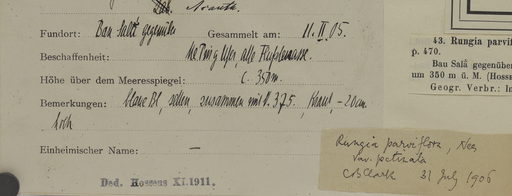 Det. Acanth.
Fundort: Ban Salät gegenüber Gesammelt am: 11. II. 05.
Beschaffenheit: Me Ping Ufer, alte
Höhe über dem Meeresspiegel: c. 350 m.
Bemerkungen: blaue Bl, selten, zusammen mit N. 375, Kraut, - 20cm.
hoch
Einheimischer Name: —
Ded. Hosseus XI.1911.
43. Rungia parvif
p. 470.
Ban Salâ gegenüb
um 350 m ü. M. (Hoss
Geogr. Verbr.: In
Rungia parviflora, Nees
var. pectinata
CBClark 31 July 1906